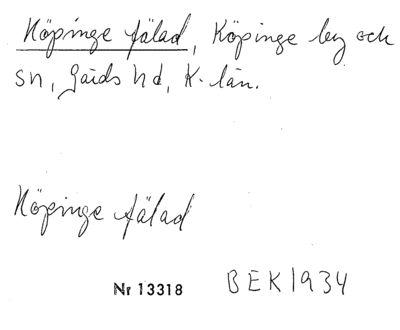 Köpinge fälad, Köpinge by och
sn, Gärds hd, K-län.
Köpinge fälad
Nr 13318 BEK 1934